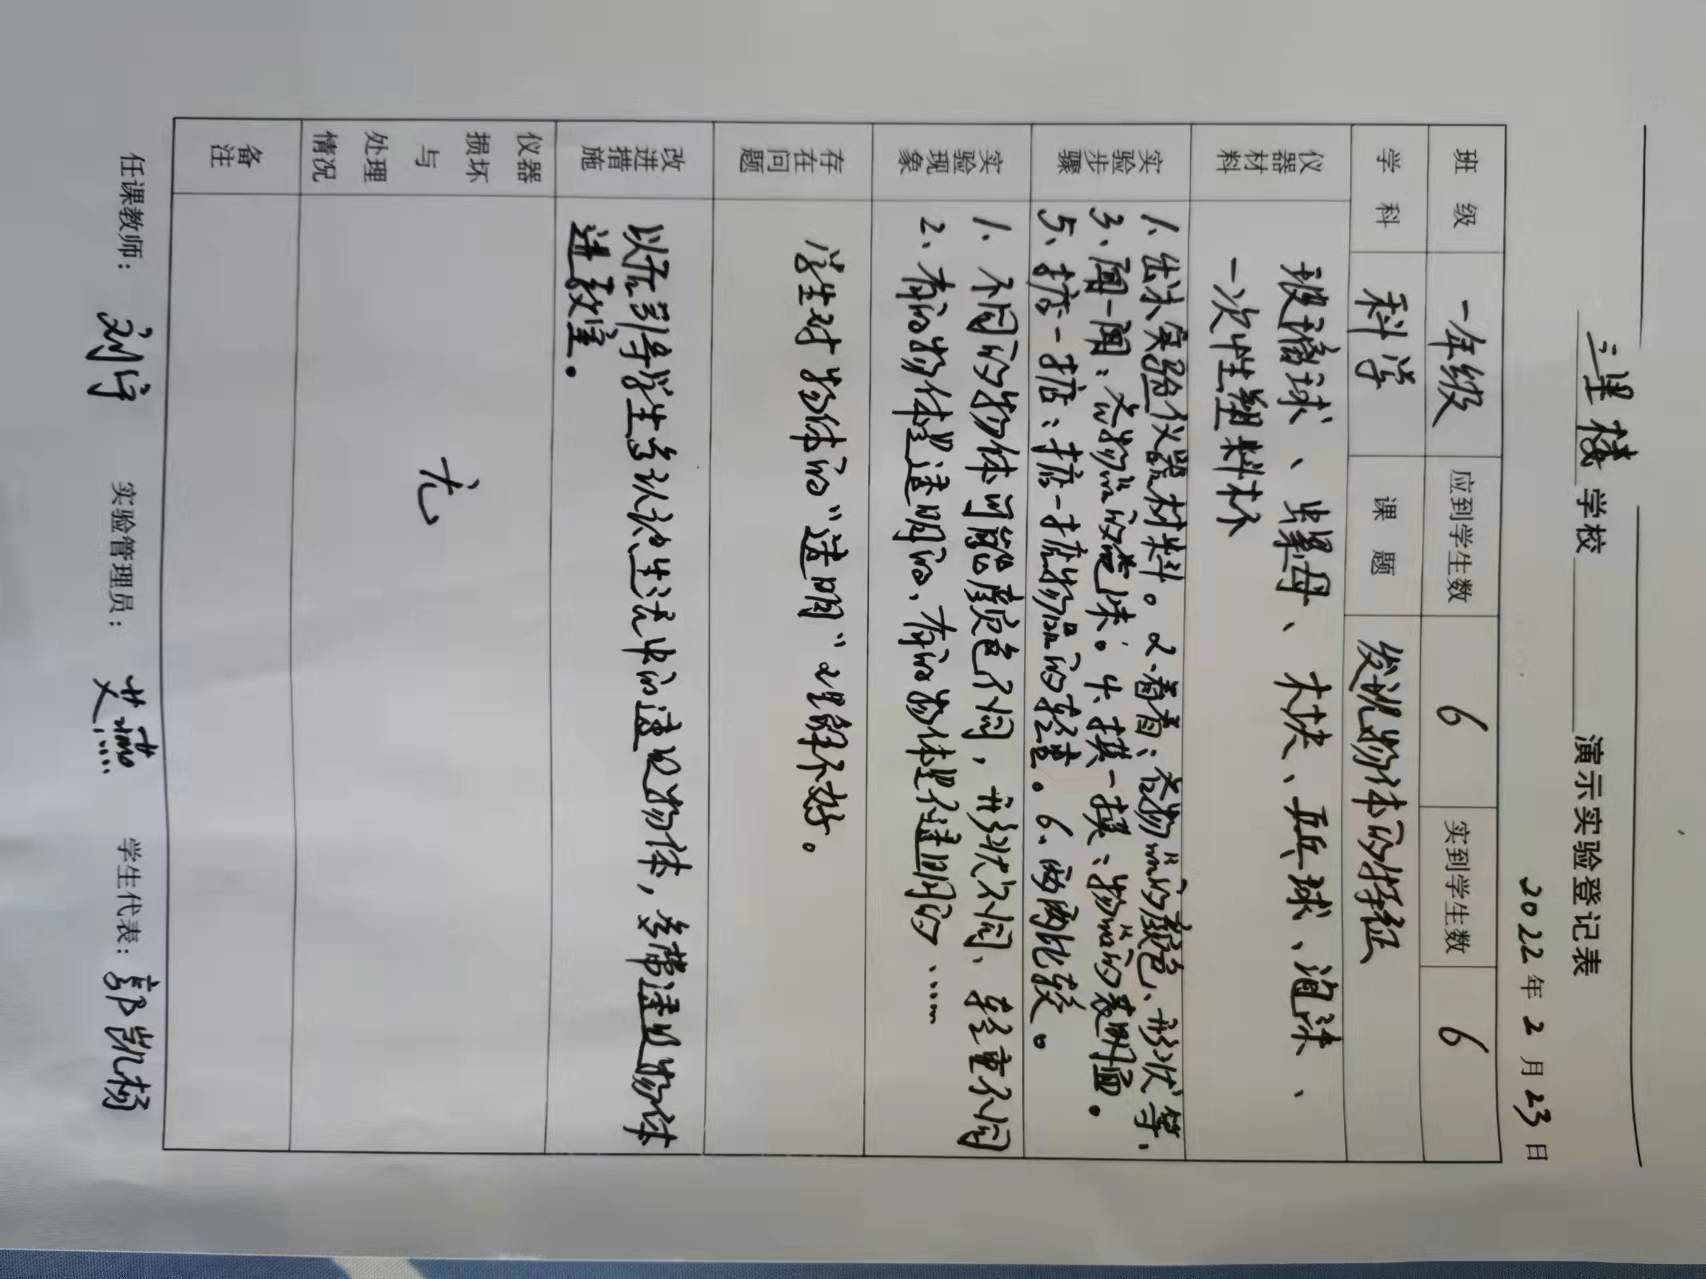 三里楼学校 演示实验登记表
2022年2月23日
班级 一年级 应到学生数 6 实到学生数 6
学科 科学 课题 发现物体的特征
仪器材料 玻璃球、螺母、木块、乒乓球、泡沫、
一次性塑料杯
实验步骤 1、出示实验仪器材料。2.看看:看物品的颜色、形状等、
3、闻一闻:闻物品的气味。4、摸一摸:物品的表面。
5、掂一掂:掂一掂物品的轻重。6、两两比较。
实验现象 1、不同的物体可能颜色不同,形状不同、轻重不同
2、有的物体是透明的、有的物体是不透明的……
存在问题 学生对物体的“透明”理解不好。
改进措施 以后引导学生多认识生活中的透明物体,多带透明物体
进教室。
仪器损坏与处理情况 无
备注
任课教师: 刘宇 实验管理员: 艾燕 学生代表: 郭凯杨